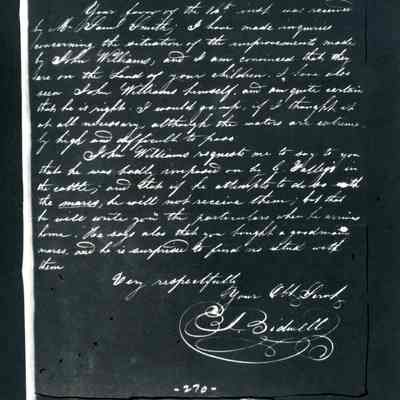 Your favor of the 14th inst. was received
by Mr. Saml Smith; I have made inquiries
concerning the situation of the improvements made
by John Williams, and I am convinced that they
are on the Land of your children. I have also
seen John Williams himself, and am quite certain
that he is right. I would go up, if I thought it
at all necessary, although the waters are extreme-
ly high and difficult to pass.
John Williams requests me to say to you
that he was badly imposed on by G. in
the cattle; and that if he attempts to do so with
the mares, he will not receive them; but that
he will write you the particulars when he arrives
home. He says also that you bought a good many
mares, and he is surprised to find no stud with
them
Very respectfully
Your Obt Servt,
J. Bidwell
-270-